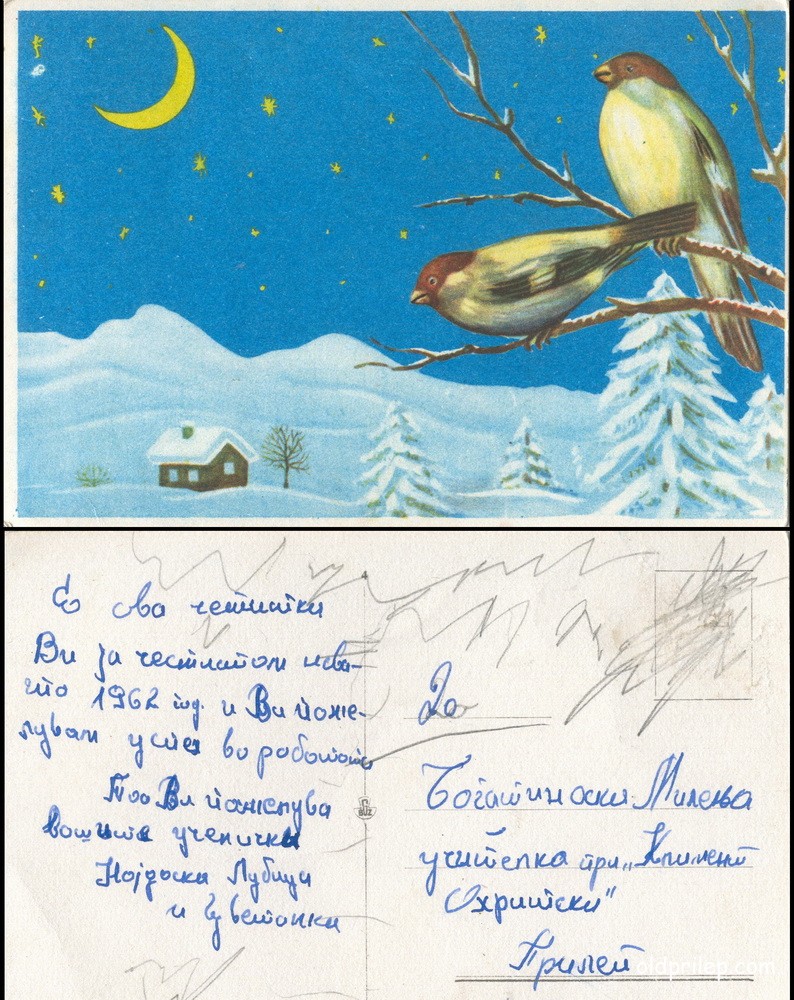 Со ова честитки
Ви ја честитам нова-
та 1962 год. и Ви поже-
лувам успех во работата
Тоа Ви пожелува
вашите ученички
Најдоска Љубица
и Цветанка
До
Богатиноски Милева
учителка при „Климент
Охритски"
Прилеп
oldprilep.com